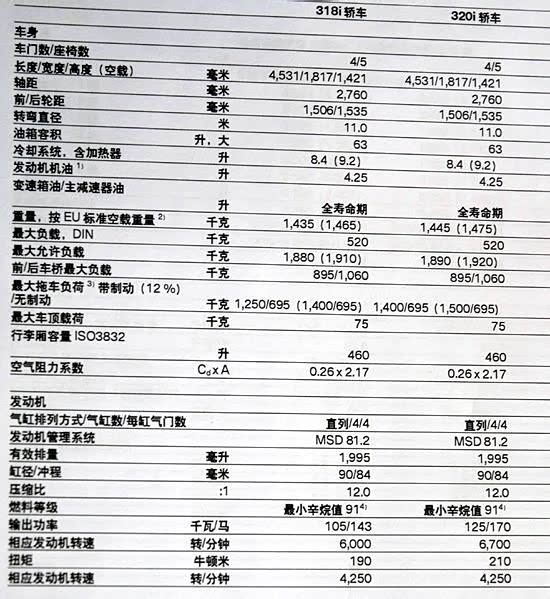 318i 轿车 320i 轿车
车身
车门数/座椅数 4/5 4/5
长度/宽度/高度（空载） 毫米 4,531/1,817/1,421 4,531/1,817/1,421
轴距 毫米 2,760 2,760
前/后轮距 毫米 1,506/1,535 1,506/1,535
转弯直径 米 11.0 11.0
油箱容积 升，大 63 63
冷却系统，含加热器 升 8.4 (9.2) 8.4 (9.2)
发动机机油 1) 升 4.25 4.25
变速箱油/主减速器油
升 全寿命期 全寿命期
重量，按 EU 标准空载重量 2) 千克 1,435 (1,465) 1,445 (1,475)
最大负载，DIN 千克 520 520
最大允许负载 千克 1,880 (1,910) 1,890 (1,920)
前/后车桥最大负载 千克 895/1,060 895/1,060
最大拖车负荷 3) 带制动（12 %）
/无制动 千克 1,250/695 (1,400/695) 1,400/695 (1,500/695)
最大车顶载荷 千克 75 75
行李厢容量 ISO3832
升 460 460
空气阻力系数 Cd x A 0.26 x 2.17 0.26 x 2.17
发动机
气缸排列方式/气缸数/每缸气门数 直列/4/4 直列/4/4
发动机管理系统 MSD 81.2 MSD 81.2
有效排量 毫升 1,995 1,995
缸径/冲程 毫米 90/84 90/84
压缩比 :1 12.0 12.0
燃料等级 最小辛烷值 91 4) 最小辛烷值 91 4)
输出功率 千瓦/马 105/143 125/170
相应发动机转速 转/分钟 6,000 6,700
扭矩 牛顿米 190 210
相应发动机转速 转/分钟 4,250 4,250